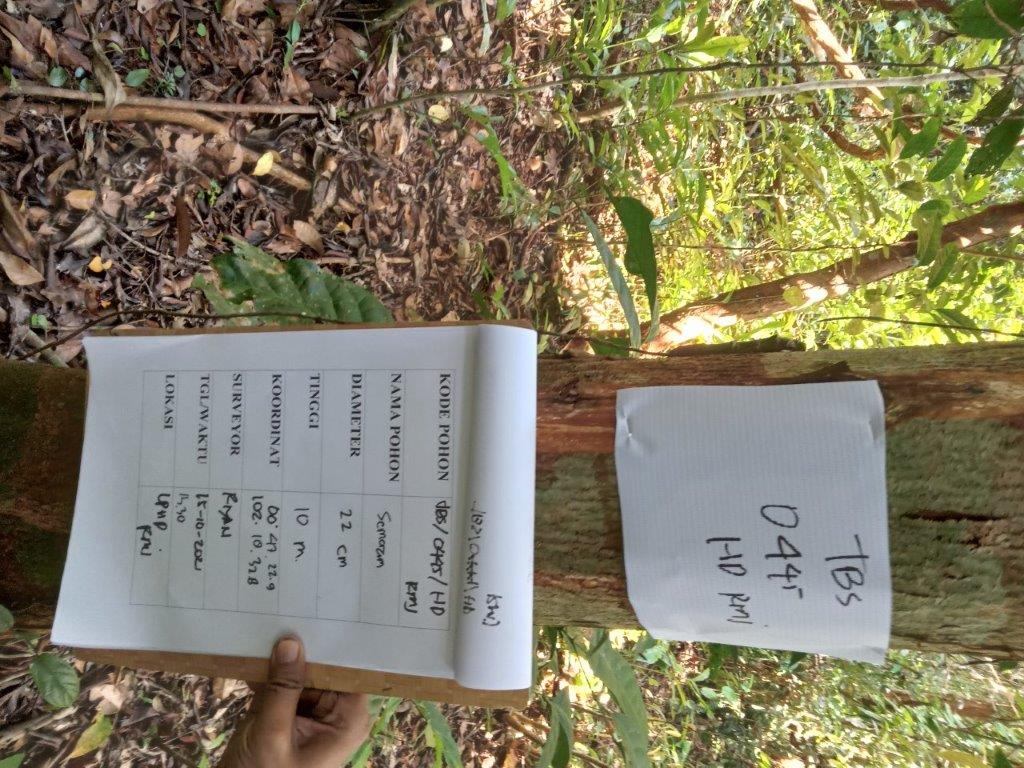 TBS
0445
HD RMJ
KODE POHON TBS/0445/HD
RMJ
NAMA POHON
DIAMETER 22 cm
TINGGI 10 m.
KOORDINAT 00° 47. 22.9
102. 10. 328
SURVEYOR RIYAN
TGL/WAKTU 15-10-2021
LOKASI LPHD
RMJ